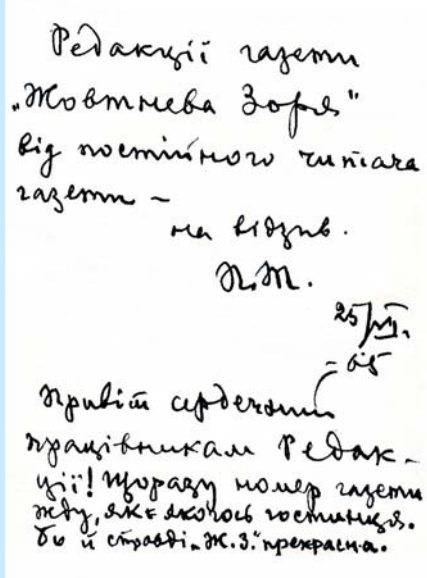 Редакції газети
„Жовтнева Зоря"
від постійного читача
газети –
на відзив.
П.Т.
25/VII.
– 65
Привіт сердечний
працівникам Редак-
ції! Щоразу номер газети
жду, як якогось гостинця.
Бо й справді „Ж.З." прекрасна.